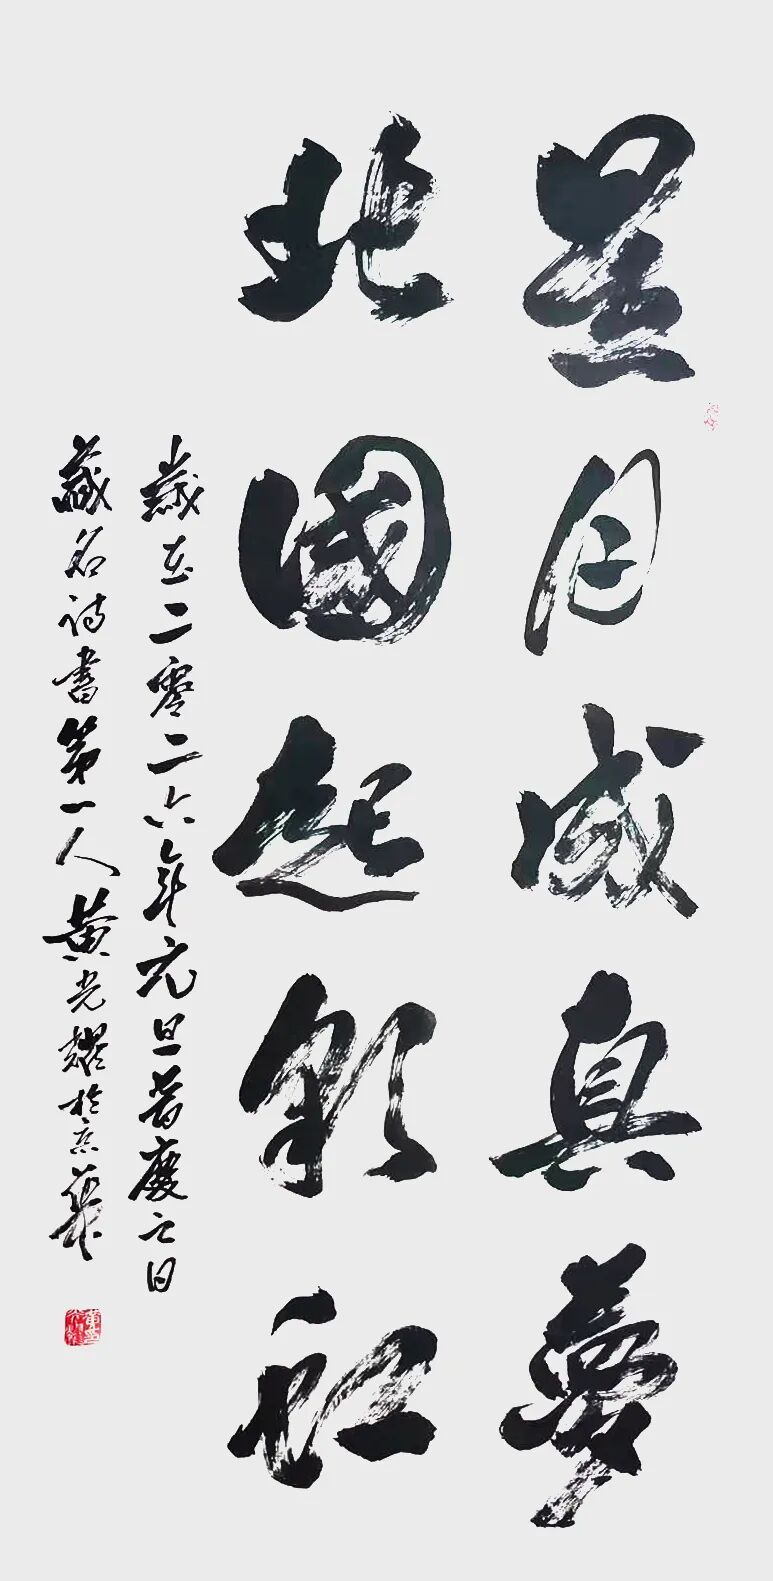 星月成真夢
北國起彩虹
歲在二零二六年元旦普慶之日
藏名诗書第一人黄光耀於京華